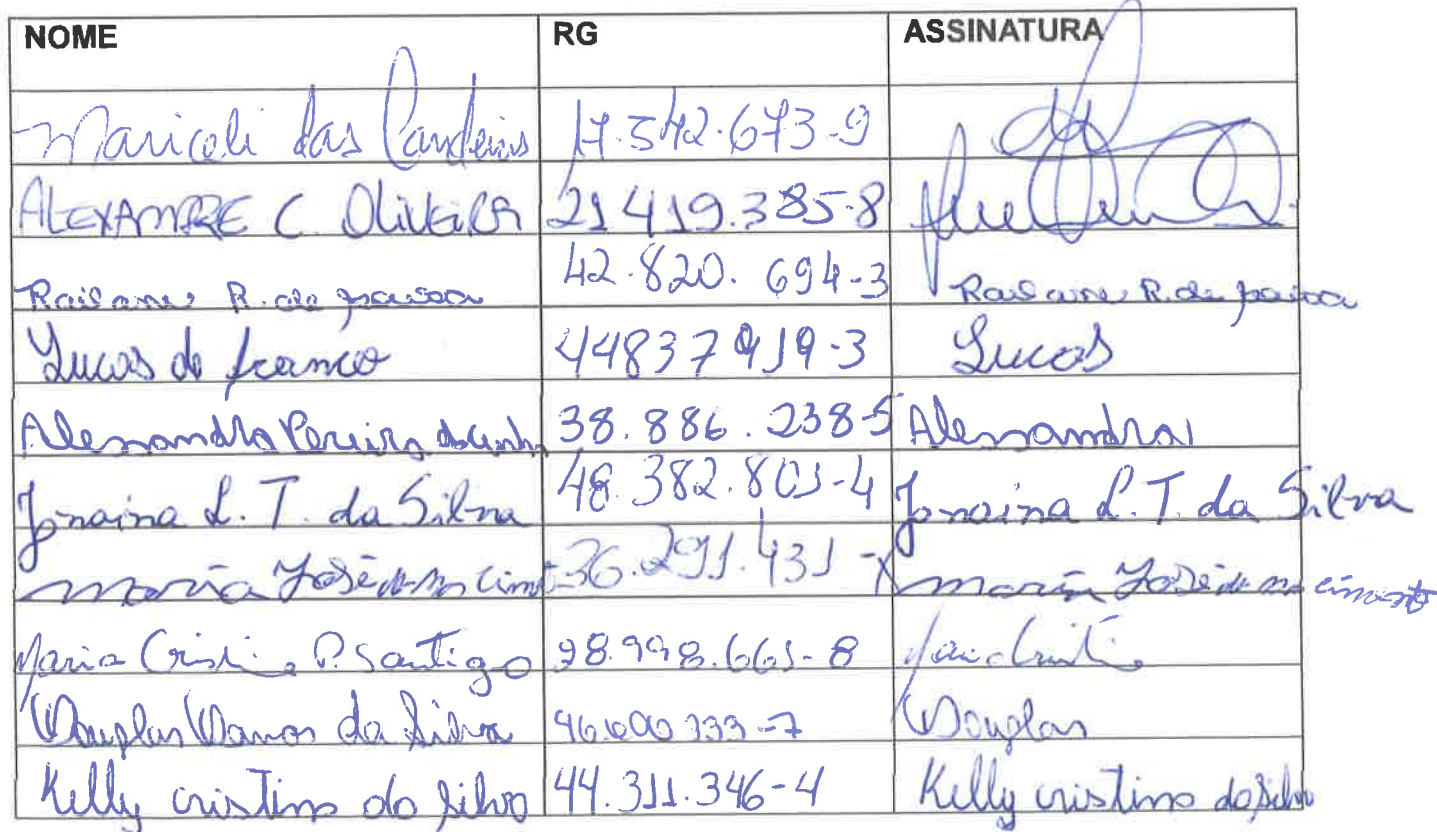 NOME RG ASSINATURA
Mariceli das Candeias 17.542.673-9
ALEXANDRE C. OLIVEIRA 21419.385-8
Railane R. de paiva 42.820.694-3 Railane R. de paiva
Lucas de franco 44837919-3 Lucas
Alessandra Pereira da cunha 38.886.238-5 Alessandra
Janaina L. T. da Silva 48.382.801-4 Janaina L. T. da Silva
maria José do nascimento 36.291.431-X maria José do nascimento
Maria Cristina P. Santigo 28.998.661-8
Douglas da Silva -7 Douglas
Kelly cristina da Silva 44.311.346-4 Kelly cristina da Silva